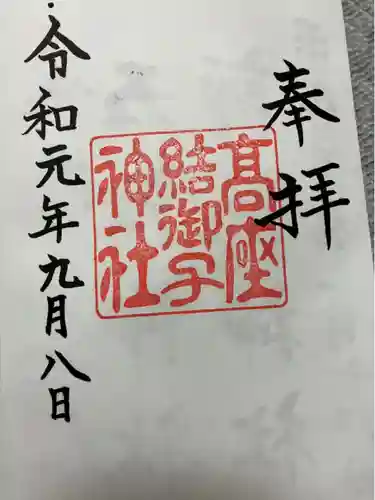 奉拝
高座
結御子
神社
令和元年九月八日